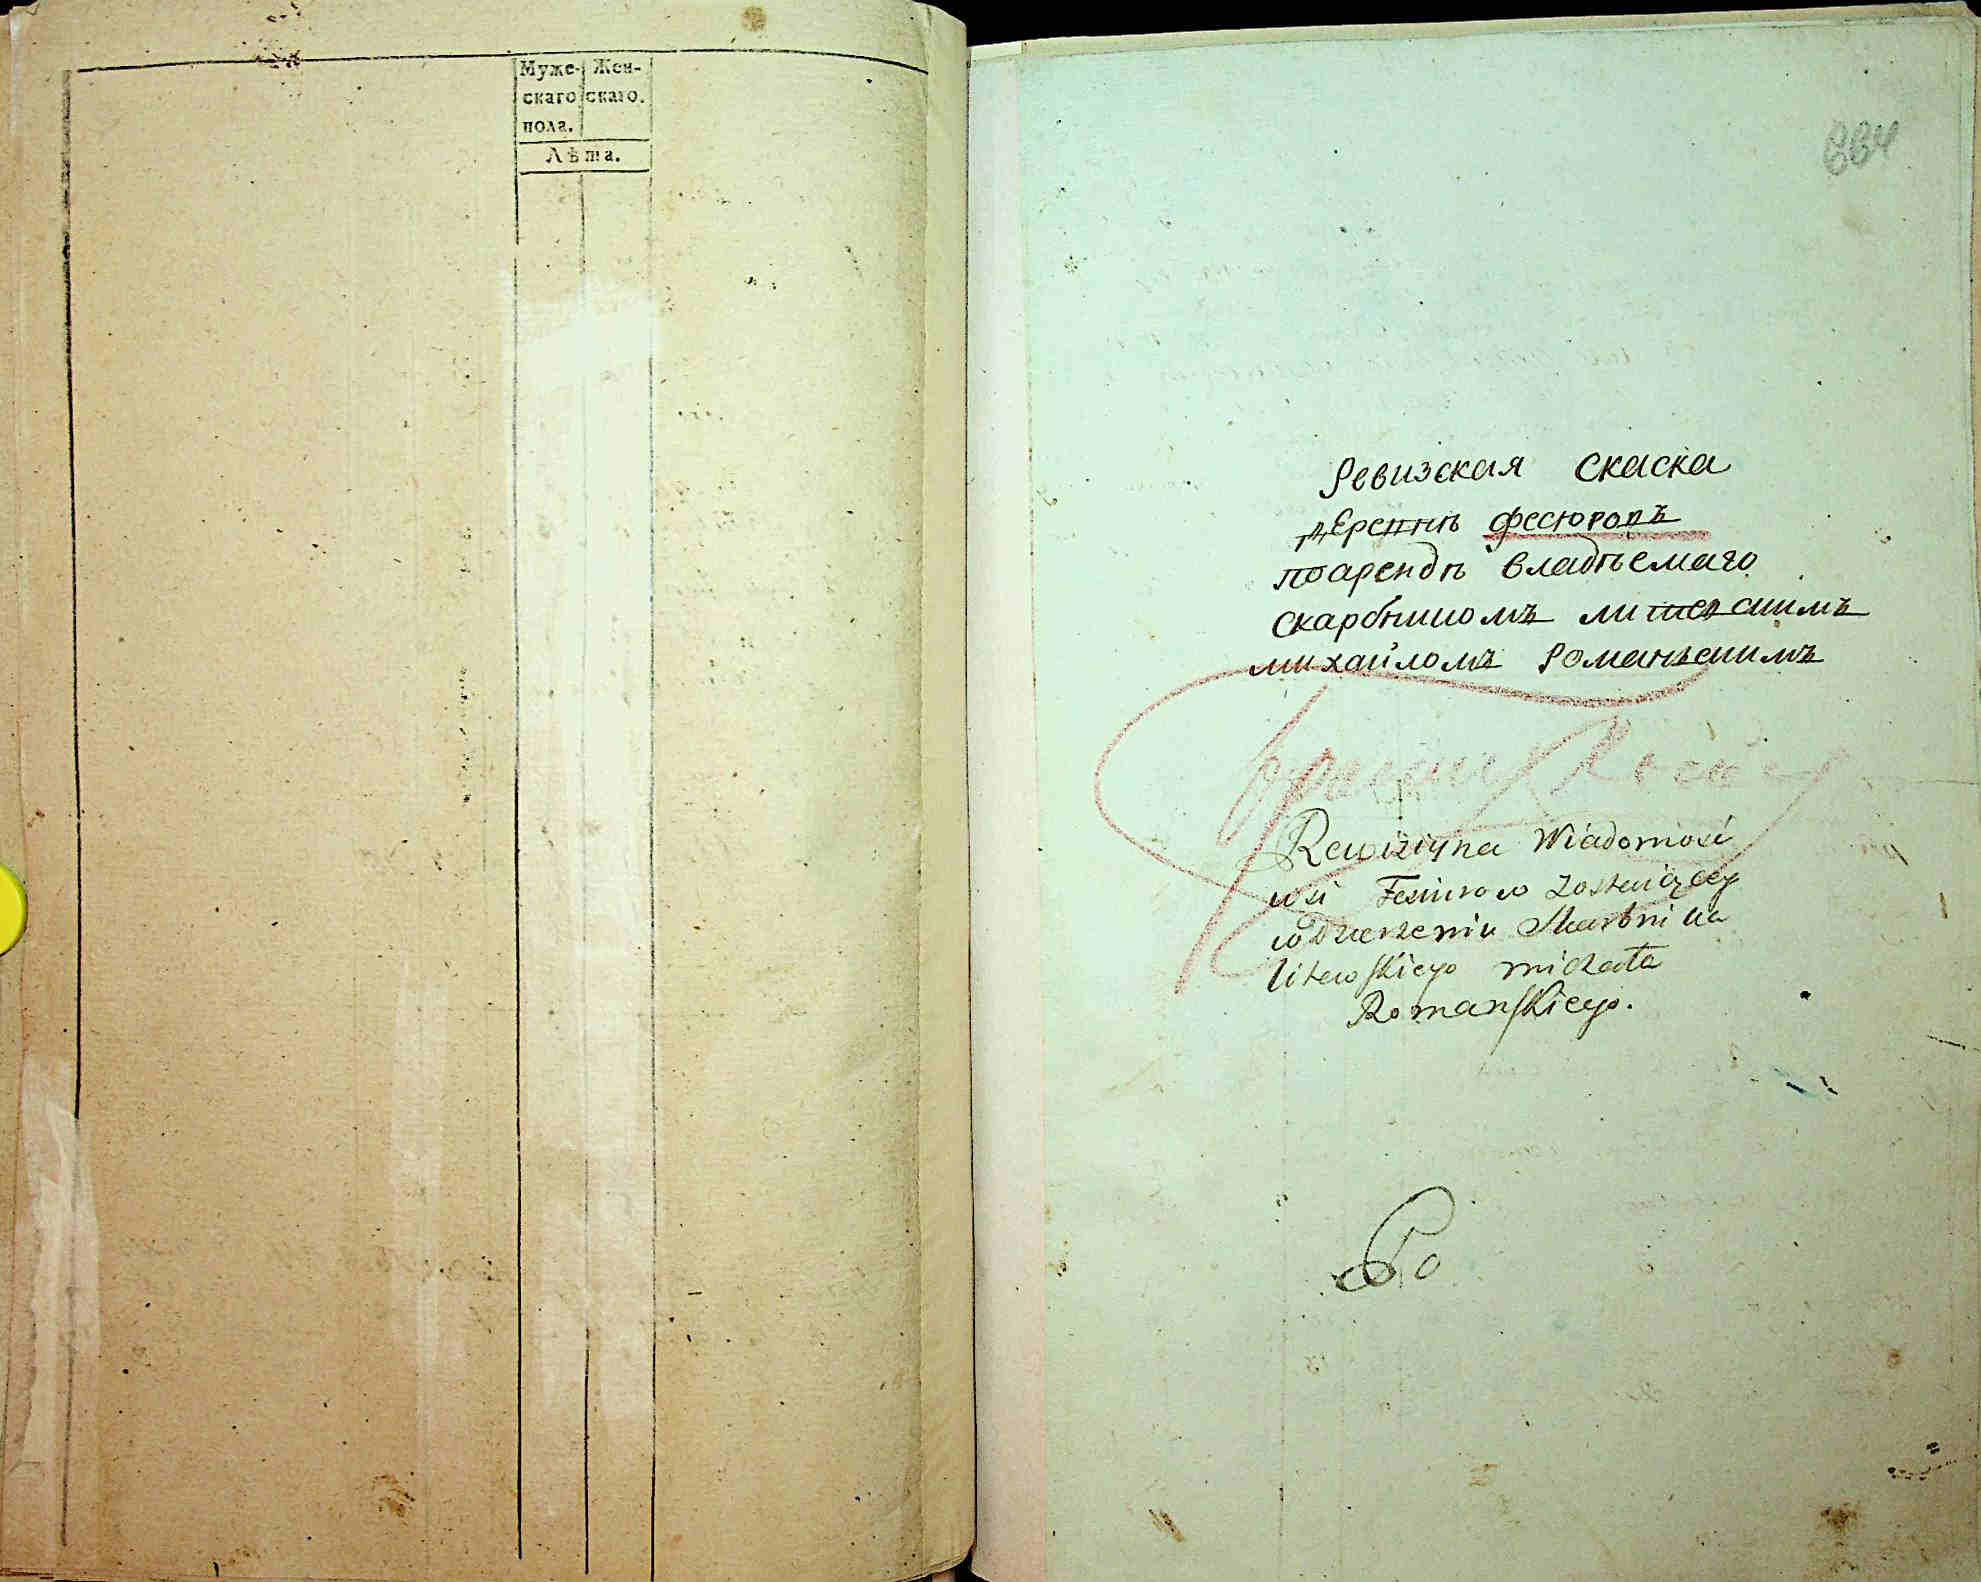 Муже- Жен-
скаго скаго.
пола.
Лѣта.
664
Ревизская скаска
деревни фесюровъ
по арендѣ владѣемаго
скарбникомъ литевскимъ
михайломъ Романьскимъ
Rewiziyna Wiadomość
wsi Fesiurow zostaiącey
w Dzierżeniu Skarbnika
litewskiego michała
Romanskiego.